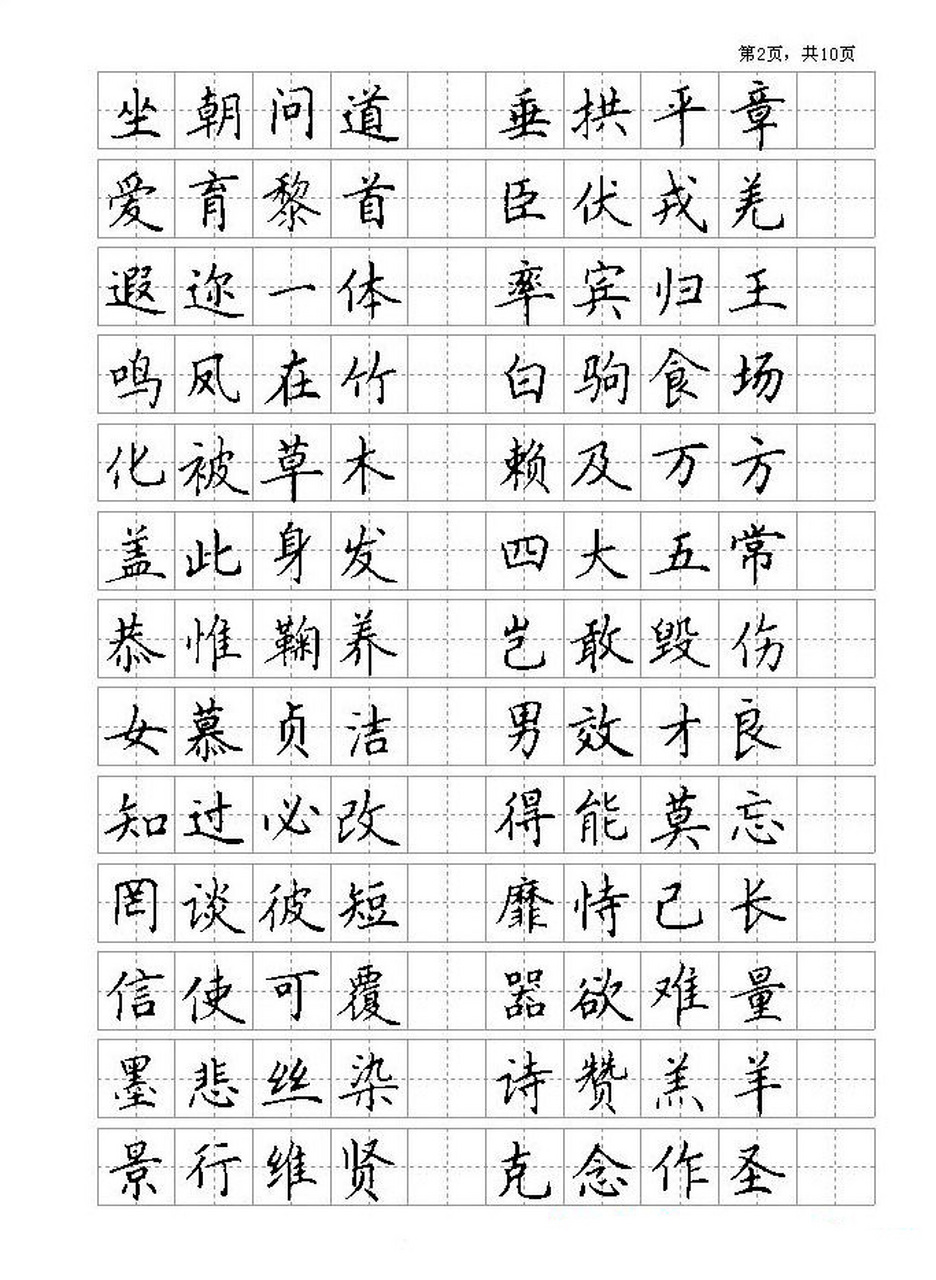 第2页，共10页
坐朝问道 垂拱平章
爱育黎首 臣伏戎羌
遐迩一体 率宾归王
鸣凤在竹 白驹食场
化被草木 赖及万方
盖此身发 四大五常
恭惟鞠养 岂敢毁伤
女慕贞洁 男效才良
知过必改 得能莫忘
罔谈彼短 靡恃己长
信使可覆 器欲难量
墨悲丝染 诗赞羔羊
景行维贤 克念作圣